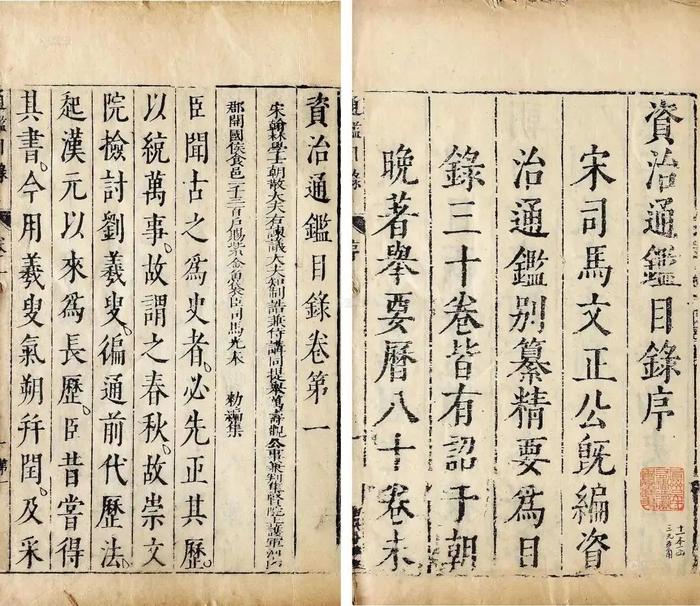 資治通鑑目錄序
宋司馬文正公既編資
治通鑑別纂精要爲目
錄三十卷皆有詔于朝
晚著舉要曆八十卷未
通鑑目錄 序
資治通鑑目錄卷第一
宋翰林學士朝散大夫右諫議大夫知制誥兼侍講同提舉萬壽觀公事兼判集賢院上護軍河內
郡開國侯食邑一千三百戶賜紫金魚袋臣司馬光奉 勅編集
臣聞古之爲史者。必先正其歷。
以統萬事。故謂之春秋。故崇文
院檢討劉羲叟。徧通前代歷法。
起漢元以來爲長歷。臣昔嘗得
其書。今用羲叟氣朔幷閏。及采
通鑑目錄